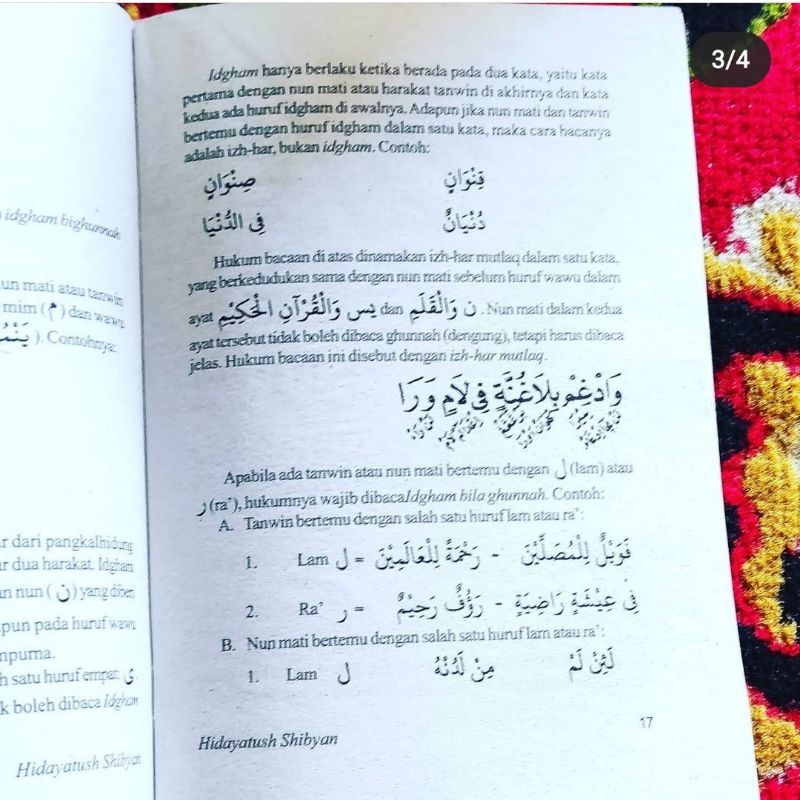 3/4
) idgham bighunnah
un mati atau tanwin
mim (م) dan wawu
). Contohnya:
ar dari pangkal hidung
ar dua harakat. Idgham
n nun (ن) yang diberi
pun pada huruf wawu
mpurna.
h satu huruf empat: ي
k boleh dibaca Idgham
Hidayatush Shibyan
Idgham hanya berlaku ketika berada pada dua kata, yaitu kata
pertama dengan nun mati atau harakat tanwin di akhirnya dan kata
kedua ada huruf idgham di awalnya. Adapun jika nun mati dan tanwin
bertemu dengan huruf idgham dalam satu kata, maka cara bacanya
adalah izh-har, bukan idgham. Contoh:
قِنْوَانٍ صِنْوَانٍ
دُنْيَانٌ فِى الدُّنْيَا
Hukum bacaan di atas dinamakan izh-har mutlaq dalam satu kata,
yang berkedudukan sama dengan nun mati sebelum huruf wawu dalam
ayat يس وَالْقُرْآنِ الْحَكِيْمِ dan ن وَالْقَلَمِ . Nun mati dalam kedua
ayat tersebut tidak boleh dibaca ghunnah (dengung), tetapi harus dibaca
jelas. Hukum bacaan ini disebut dengan izh-har mutlaq.
وَادْغِمْ بِلَاغُنَّةٍ فِى لَامٍ وَرَا
Apabila ada tanwin atau nun mati bertemu dengan ل (lam) atau
ر (ra’), hukumnya wajib dibaca Idgham bila ghunnah. Contoh:
A. Tanwin bertemu dengan salah satu huruf lam atau ra’:
1. Lam ل = فَوَيْلٌ لِلْمُصَلِّيْنَ - رَحْمَةً لِلْعَالَمِيْنَ
2. Ra’ ر = فِى عِيْشَةٍ رَاضِيَةٍ - رَؤُفٌ رَحِيْمٌ
B. Nun mati bertemu dengan salah satu huruf lam atau ra’:
1. Lam ل مِنْ لَدُنْهُ لَئِنْ لَمْ
17
Hidayatush Shibyan